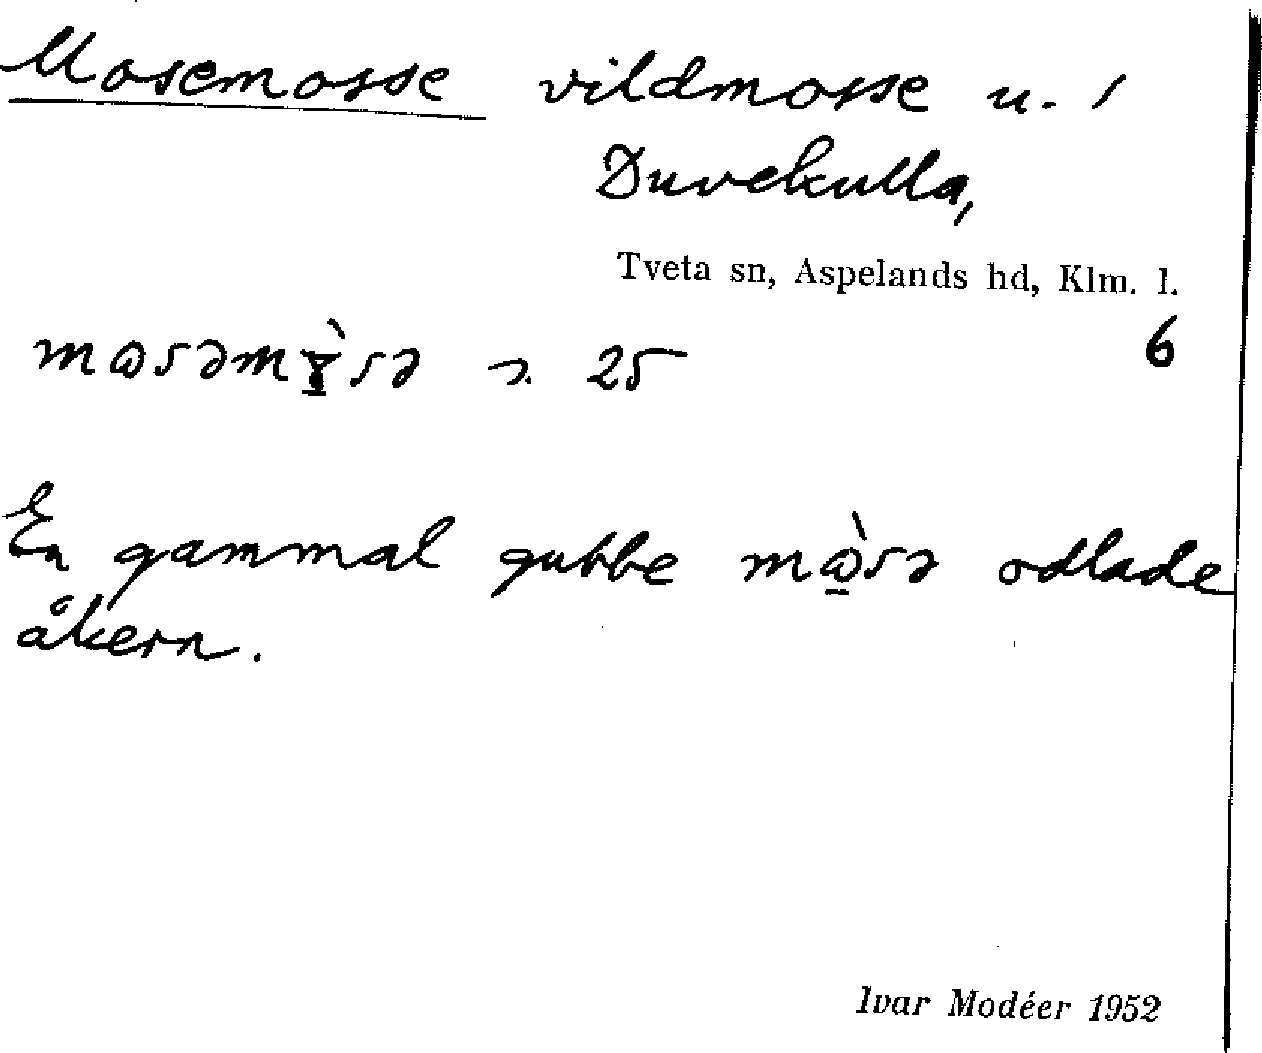 Mosemosse vildmosse u. /
Duvekulla,
Tveta sn, Aspelands hd, Klm. l.
6
25
En gammal gubbe odlade
åkern.
Ivar Modéer 1952